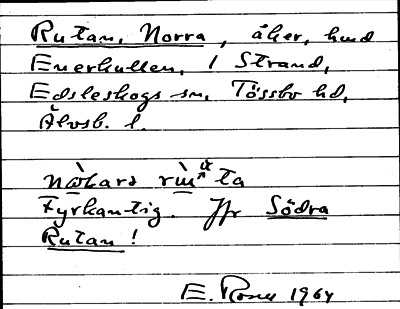 Rutan, Norra, åker, hmd
Enerkullen, 1 Strand,
Edsleskogs sn, Tössbo hd,
Älvsb. l.
ta
Fyrkantig. Jfr Södra
Rutan!
E. Rosell 1964